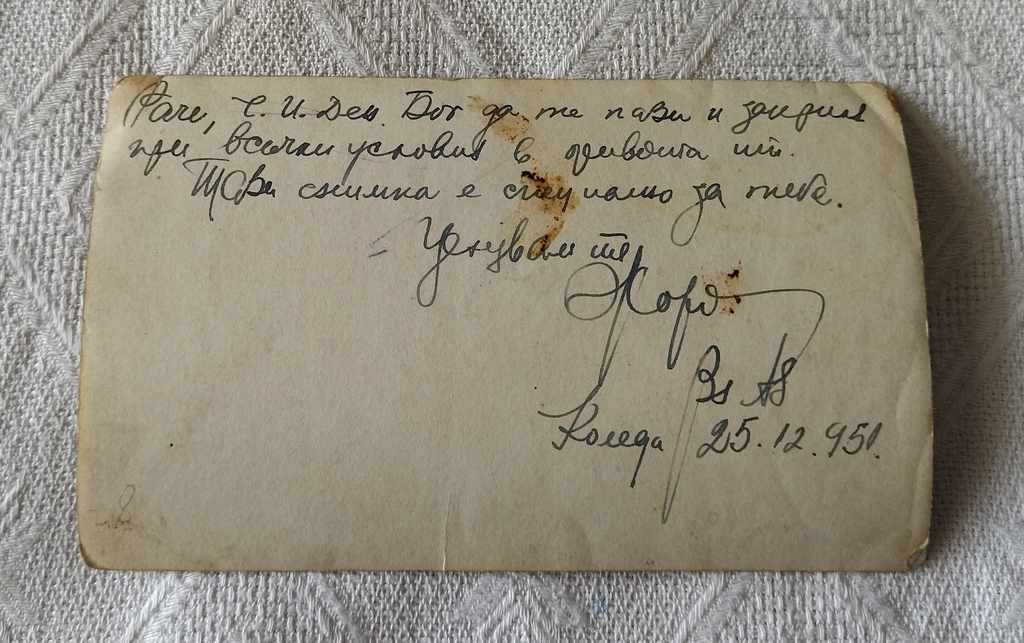 Раче, Ч. И. Ден. Бог да те пази и закриля
при всички условия в живота ти.
Тази снимка е специално за тебе.
Целувам те
Жоро
Коледа 25.12.951.